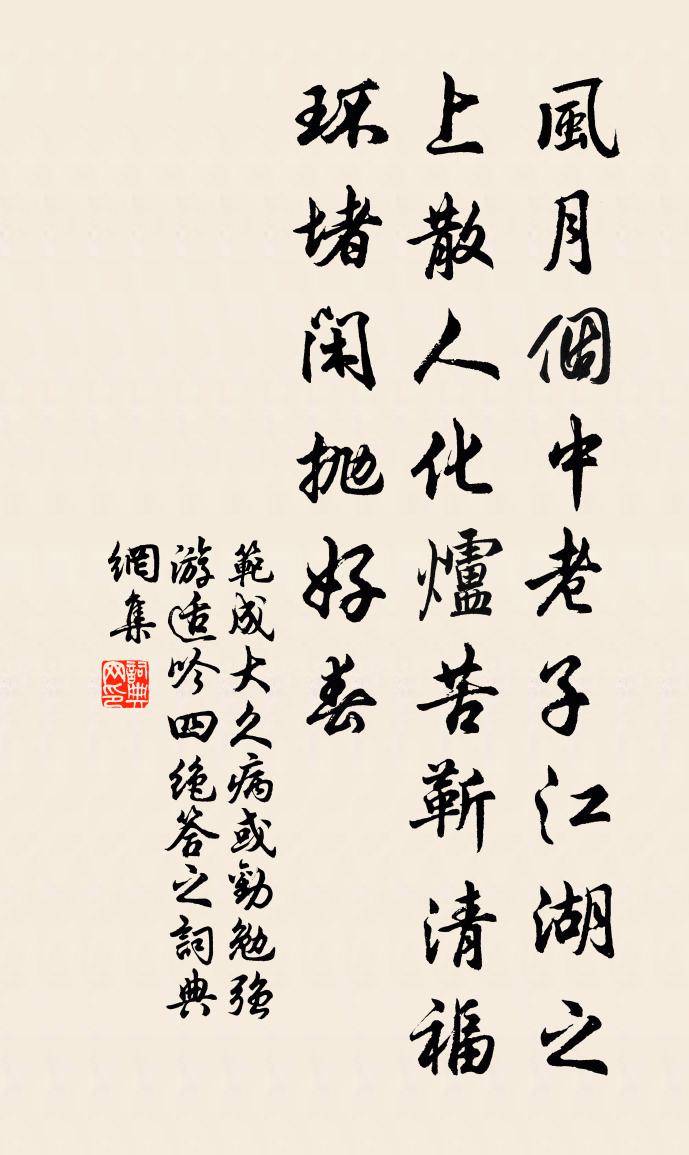 風月個中老子江湖之
上散人化爐苦靳清福
环堵閑抛好春
範成大久病或勸勉強
游适吟四絶答之詞典
網集
詞典网印